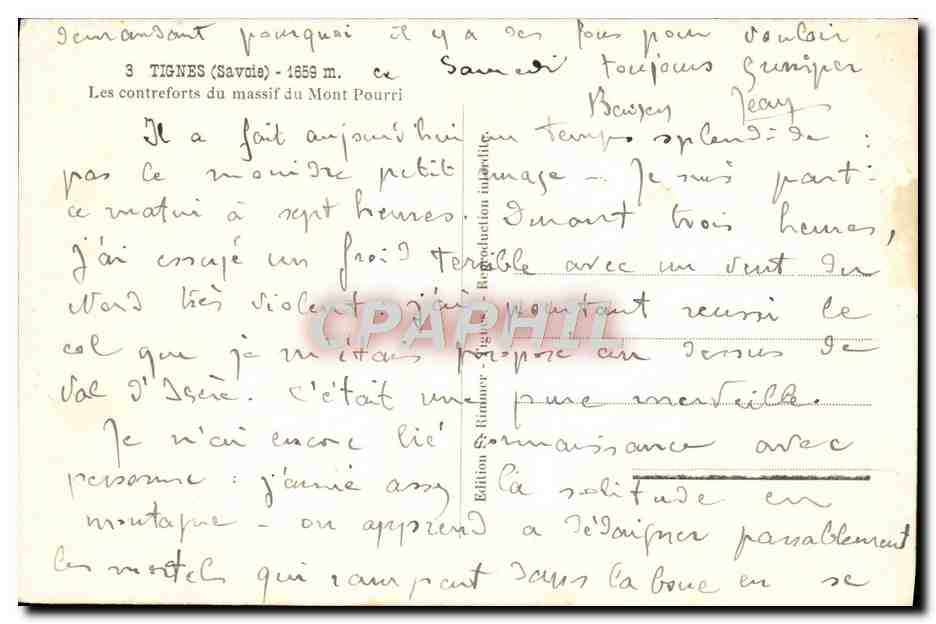 demandant pourquoi il y a des fous pour vouloir
3 TIGNES (Savoie) - 1659 m.
ce Samedi toujours grimper
Les contreforts du massif du Mont Pourri
Baisers Jean
Il a fait aujourd'hui un temps splendide :
pas le moindre petit nuage - Je suis parti
ce matin à sept heures. Durant trois heures,
j'ai essuyé un froid terrible avec un vent du
Nord très violent. j'ai pourtant reussi le
col que je m'étais proposé au dessus de
Val d'Isère. C'était une pure merveille.
Je n'ai encore lié connaissance avec
personne : j'aime assez la solitude en
montagne - on apprend a dédaigner passablement
les mortels qui rampent dans la boue en se
Edition F. Rimmer - Tignes - Reproduction interdite
CPAPHIL